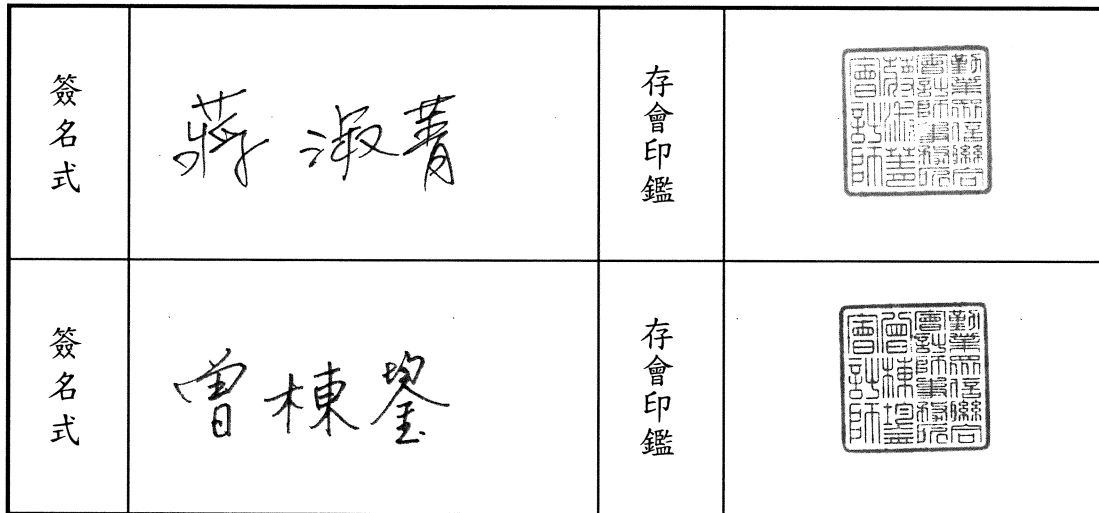 簽名式
蔣淑菁
存會印鑑
勤業眾信聯合
會計師事務所
蔣淑菁
會計師
簽名式
曾棟鋆
存會印鑑
勤業眾信聯合
會計師事務所
曾棟鋆
會計師